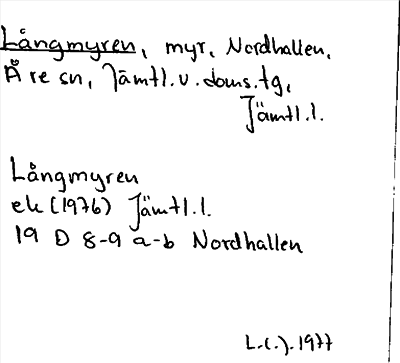 Långmyren, myr, Nordhallen,
Åre sn, Jämtl.v.doms.tg,
Jämtl.l.
Långmyren
ek (1976) Jämtl.l.
19 D 8-9 a-b Nordhallen
L.(.).1977